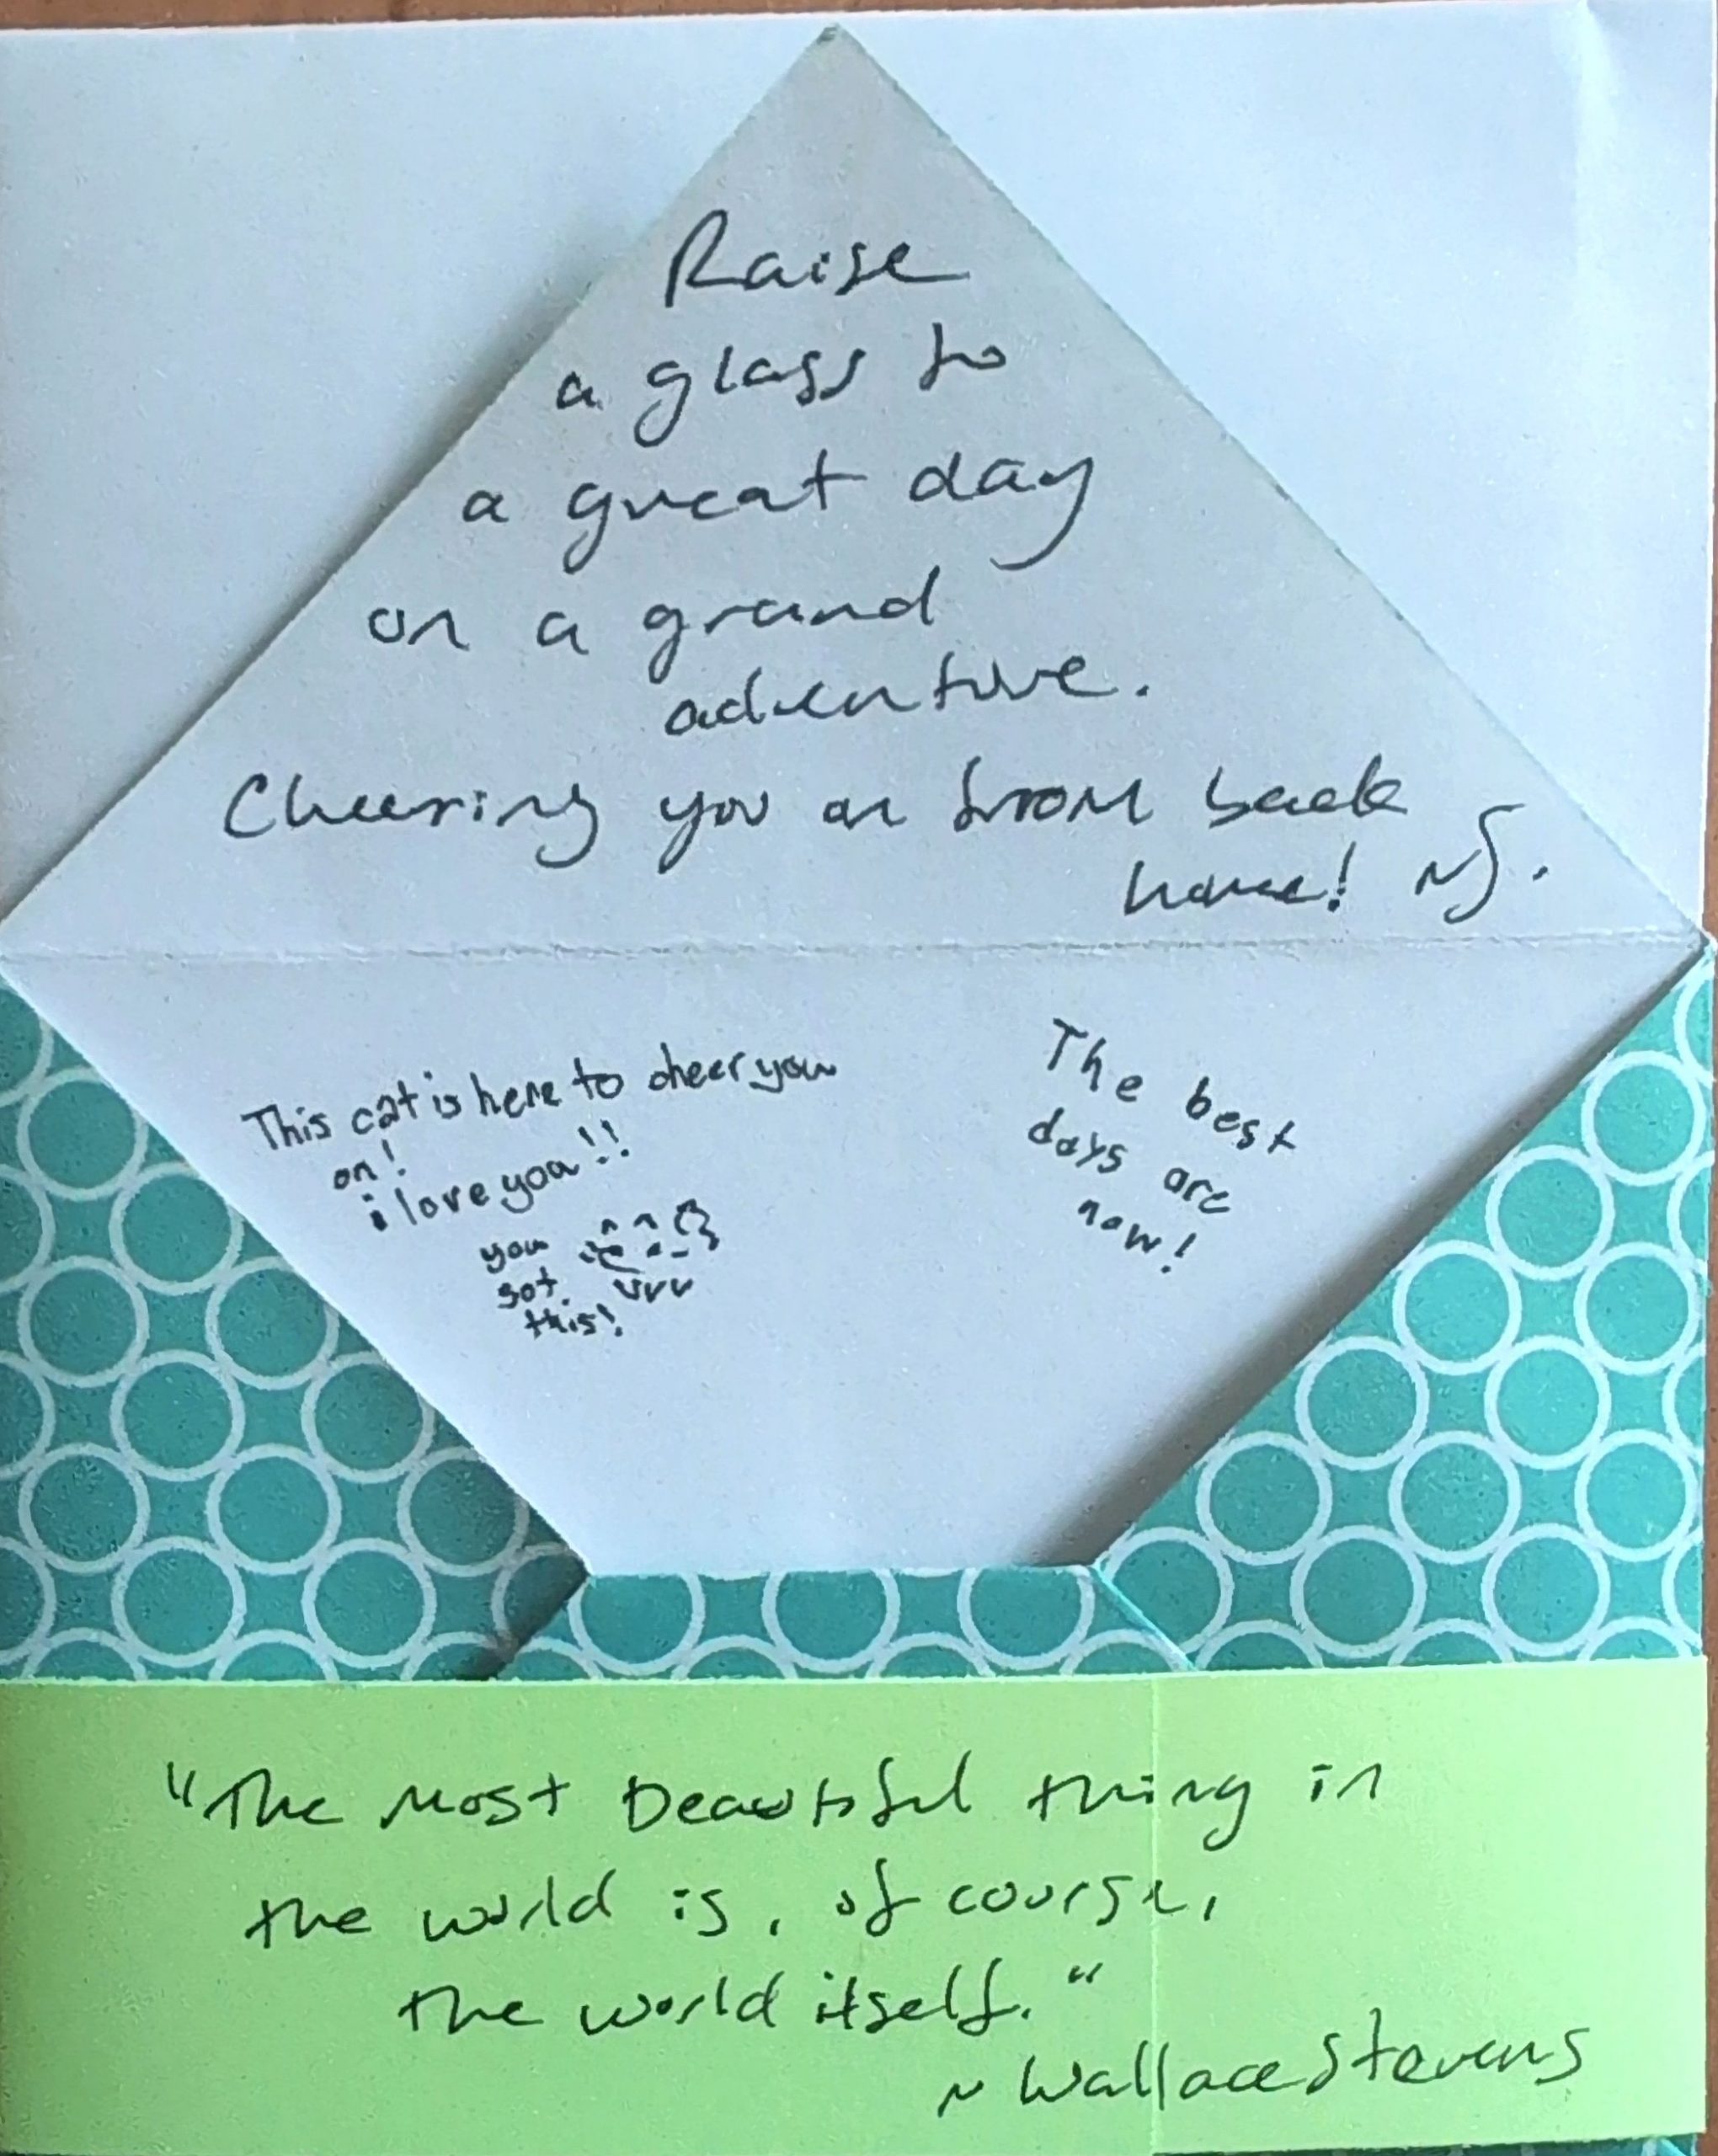 Raise
a glass to
a great day
on a grand
adventure.
Cheering you on from back
home! ~J.
This cat is here to cheer you
on!
i love you!!
you
got
this!
The best
days are
now!
"The most beautiful thing in
the world is, of course,
the world itself."
~ Wallace Stevens